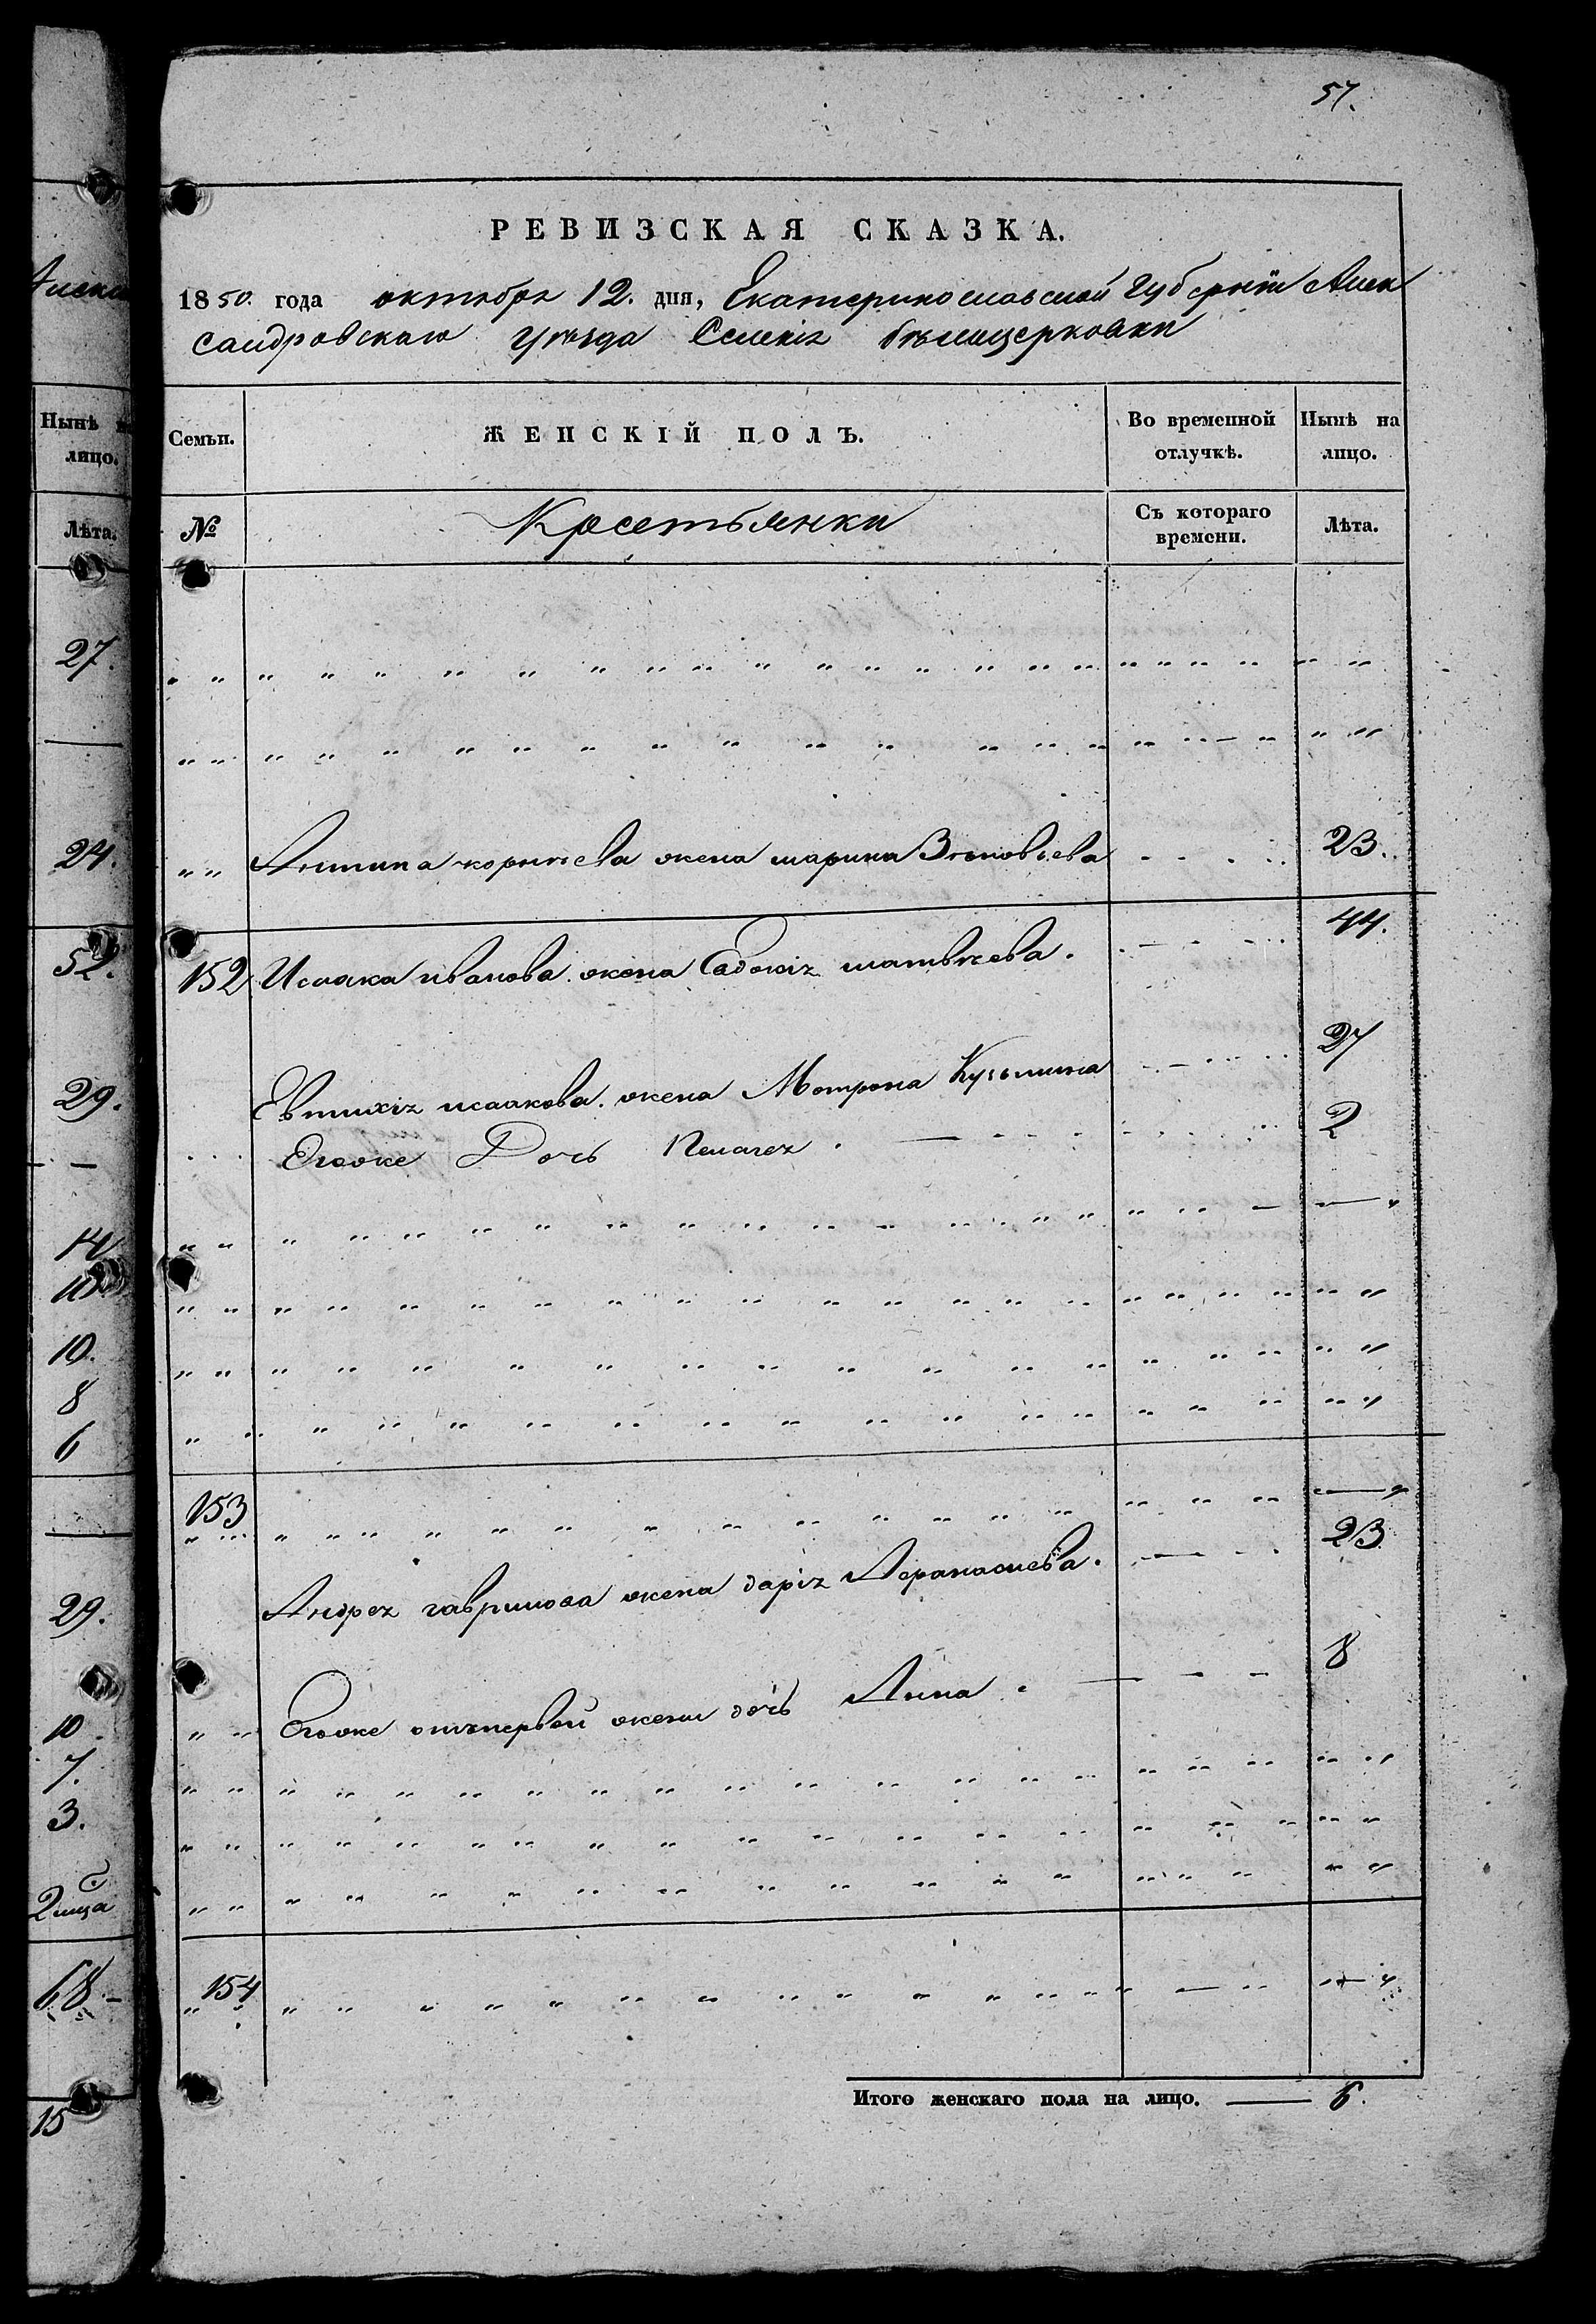 57.
РЕВИЗСКАЯ СКАЗКА.
1850. года октября 12. дня, Екатеринославской губернiи Алек
сандровскаго уезда Селенiя бѣлицерковки
Нынѣ
лицо.
Семьи.
ЖЕНСКIЙ ПОЛЪ.
Во временной отлучкѣ.
Нынѣ на лицо.
Лѣта.
№
Крестьянки
Съ котораго времени.
Лѣта.
27.
24.
Антипа корнѣева жена марина Зѣновѣева 23.
52.
152 Исаака иванова жена Євдокiя матвѣева. 44.
29.
Євтихiя исаакова. жена Мотрона Кузьмина 27
Єгоже Дочь Пелагея 2
14
10
10.
8
6
153
29.
Андрея гаврилова жена дарiя Афанасиева. 23
Єгоже отъпервой жены дочь Анна 8
10
7.
3.
2 мца
68
154
15
Итого женскаго пола на лицо. 6.